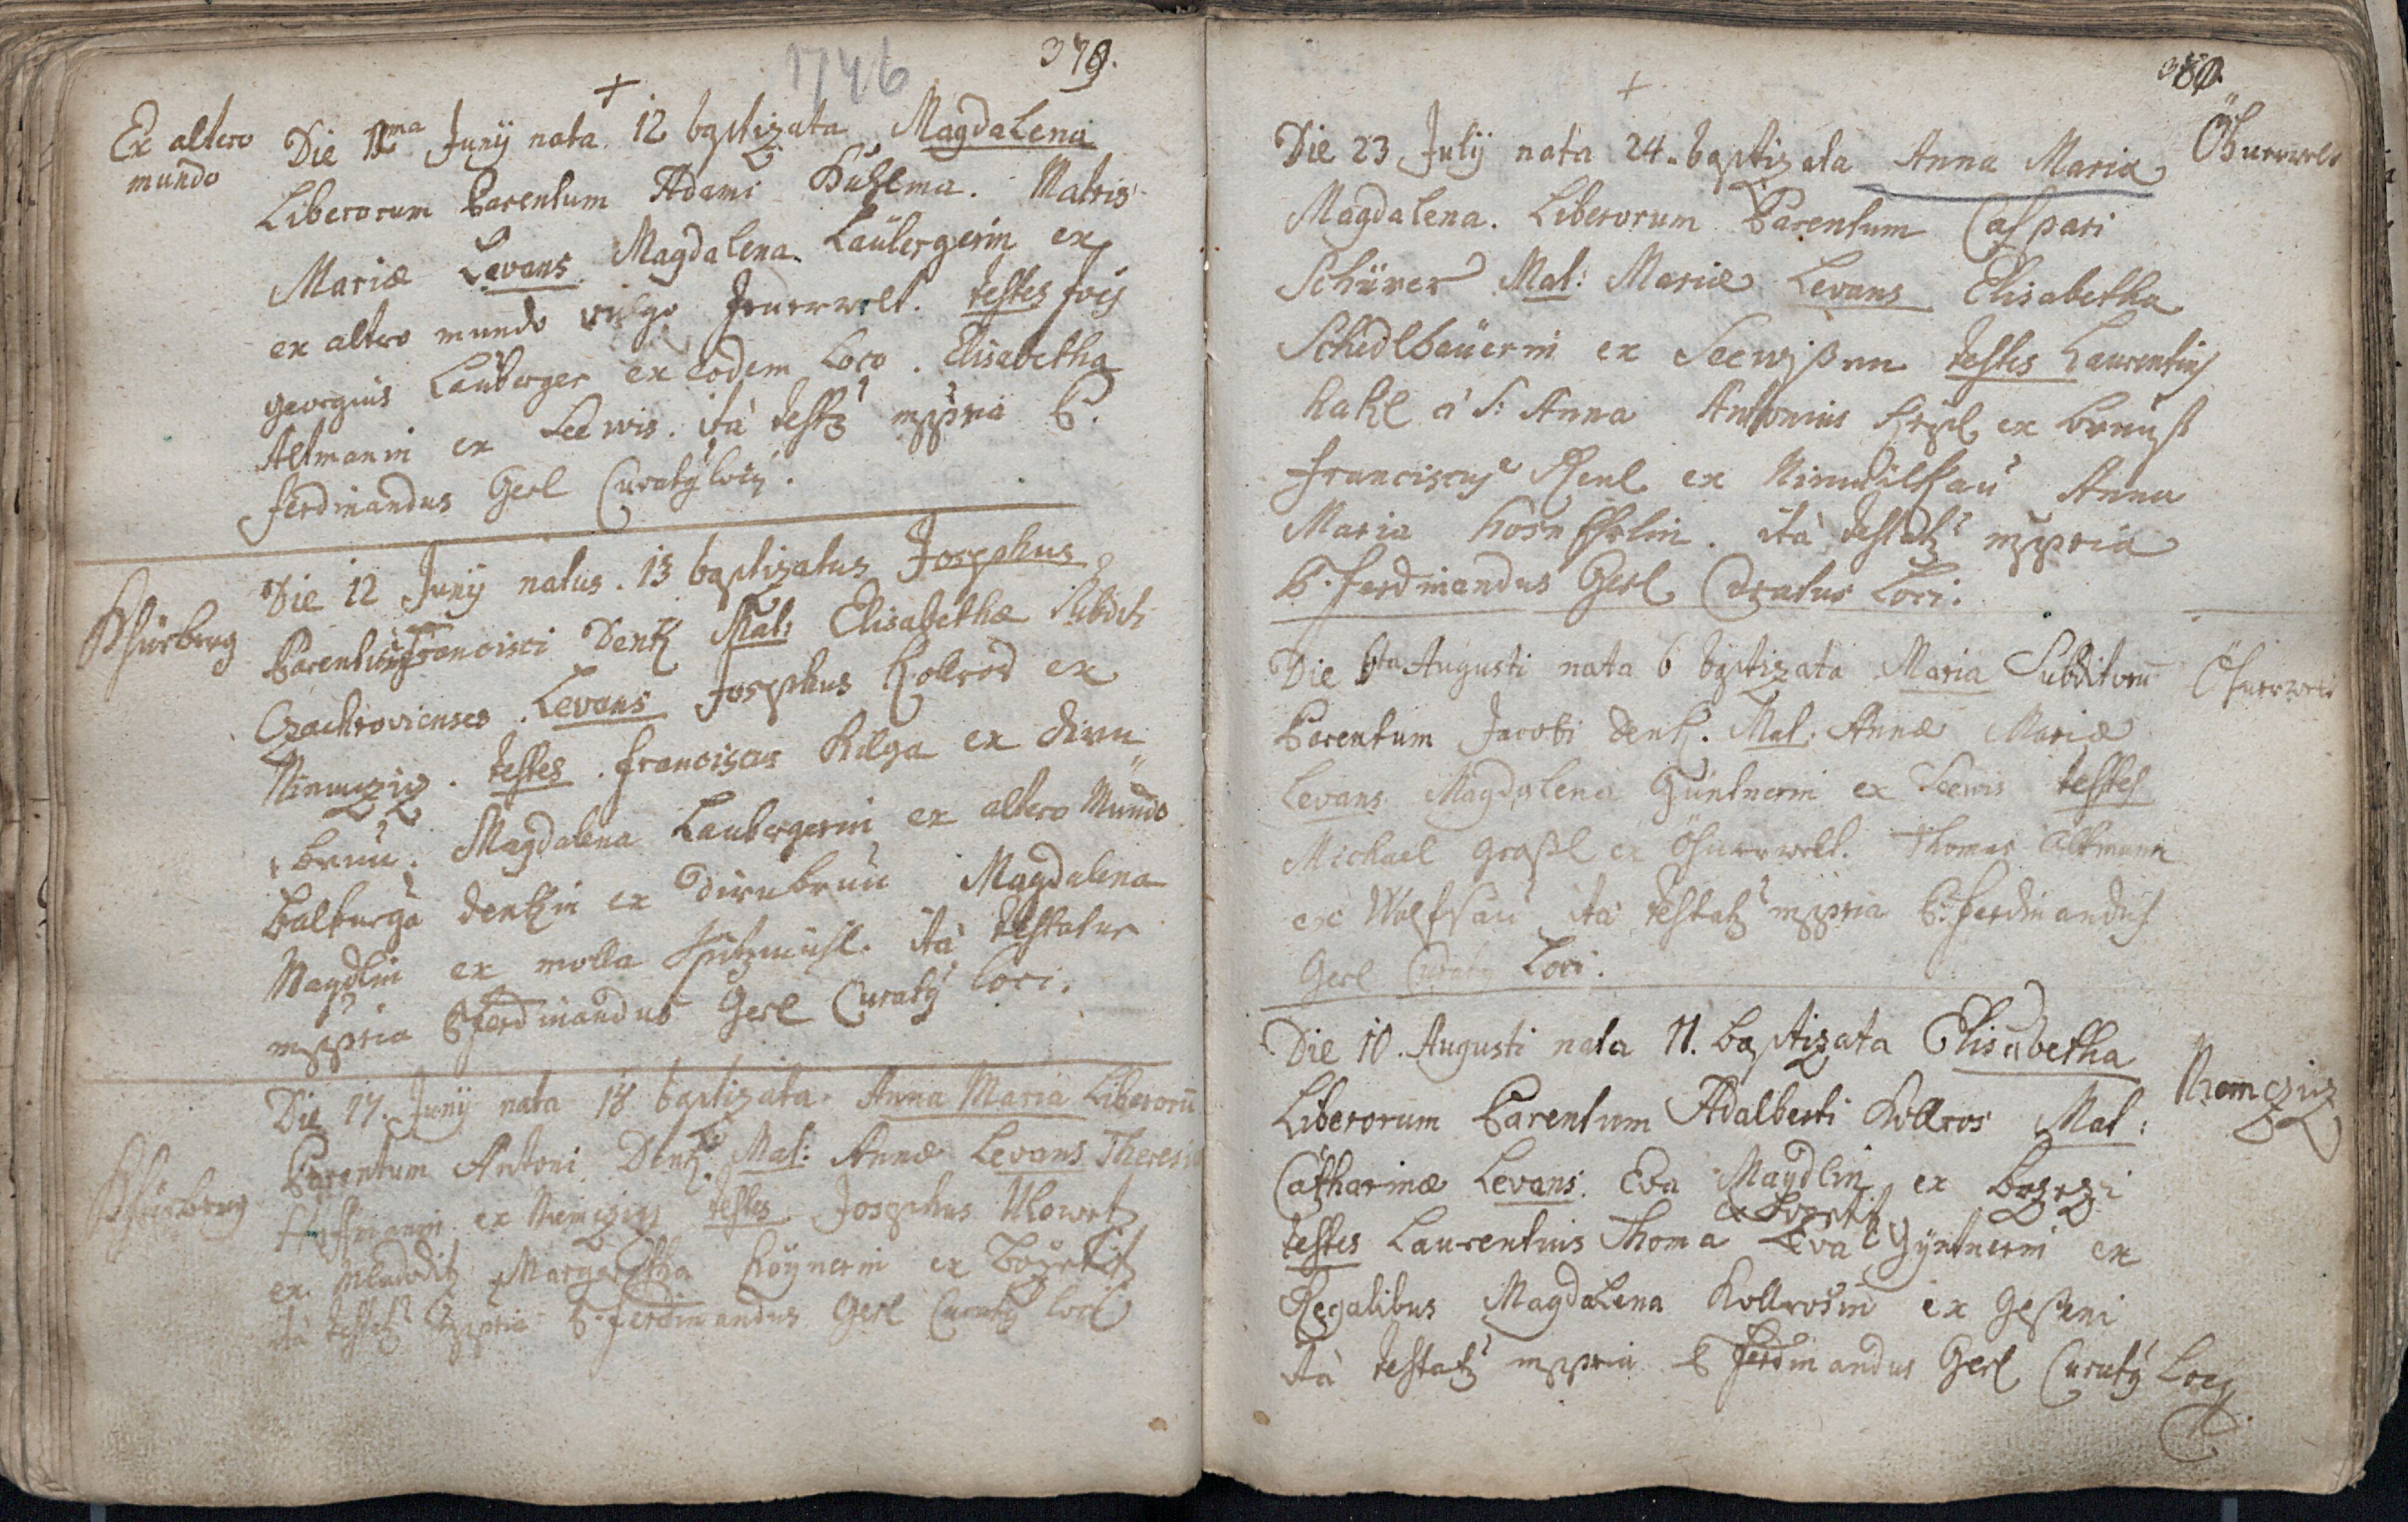 1746
379.
Ex altero
mundo
Die 11ma Junÿ nata 12 baptizata Magdalena
Liberorum Parentum Adami Matris
Mariæ Levans Magdalena Laübergerin ex
ex altero mundo vulgo testes
Georgius Lauberger ex eodem Loco. Elisabetha
Altmanin ex Seewis. ità testatz mppria P.
Ferdinandus Gerl Curatÿ locÿ.
Die 12 Junÿ natus. 13 baptizatus Josephus
Parentum Francisci Denk Mat: Elisabethæ Subditi
Czachrovienses. Levans Josephus Kollros ex
Niemcziz. testes. Franciscus Kilga ex dirn
brun. Magdalena Laubergerin ex altero Mundo
Balburga denkin ex dirnbrun Magdalena
Maydlin ex molla ità testatur
mppria P Ferdinandus Gerl Curatÿ loci.
Die 17. Junÿ nata 18 baptizata. Anna Maria Liberorū
Parentum Antoni Denk. Mat: Annæ Levans Theresia
Hoffmanin ex Niemcziz testes Josephus
ex Margaretha ex
ità testatz mppria P. Ferdinandus Gerl Curatÿ loci
380.
Die 23 Julÿ nata 24. baptizata Anna Maria
Magdalena. Liberorum Parentum Caspari
Schürer Mat: Mariæ Levans Elisabetha
Schedlbaüerin ex Seewisen testes Laurentius
hakl à S: Anna Antonius ex
Franciscus ex Anna
Maria ità testatz mppria
P. Ferdinandus Gerl Curatus Loci.
Die 6ta Augusti nata 6 baptizata Maria Subditorū
Parentum Jacobi denk. Mat: Annæ Mariæ
Levans Magdalena Güntnerin ex Seewis testes
Michael graßl ex Thomas Altmann
ex Wolfsau ità testatz mppria P: Ferdinandus
Gerl Curatÿ Loci.
Die 10. Augusti nata 11. baptizata Elisabetha
Niemcziz
Liberorum Parentum Adalberti Kollros Mat:
Catharinæ Levans. Eva Maydlin ex
testes Laurentius Thoma Eva Gÿntnerin ex
Regalibus Magdalena Kollrosin ex
ità testatz mppria P Ferdinandus Gerl Curatÿ Locÿ